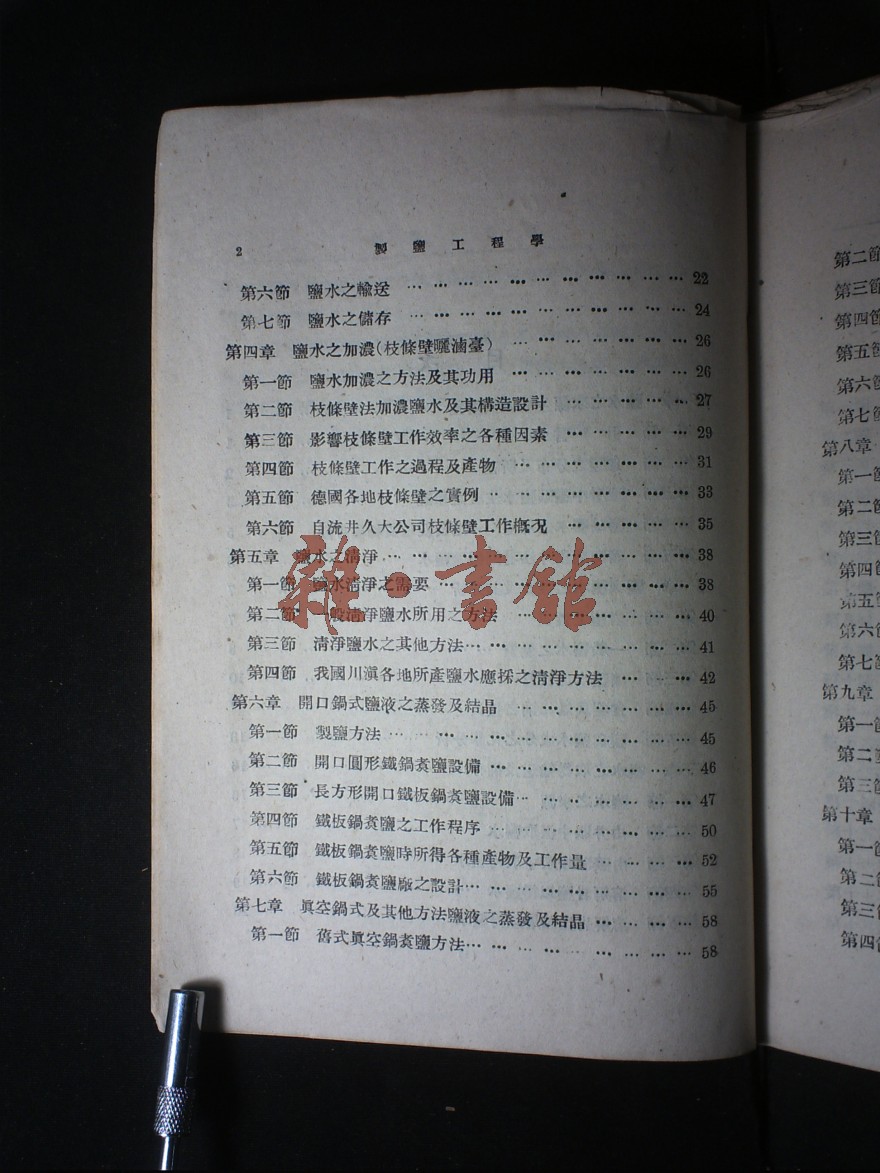 2 製鹽工程學
第六節 鹽水之輸送 … … … … … … … … … … … 22
第七節 鹽水之儲存 … … … … … … … … … … … 24
第四章 鹽水之加濃(枝條壁曬滷臺) … … … … … … … 26
第一節 鹽水加濃之方法及其功用 … … … … … … … 26
第二節 枝條壁法加濃鹽水及其構造設計 … … … … … 27
第三節 影響枝條壁工作效率之各種因素 … … … … … 29
第四節 枝條壁工作之過程及產物 … … … … … … … 31
第五節 德國各地枝條壁之實例 … … … … … … … … 33
第六節 自流井久大公司枝條壁工作概况 … … … … … 35
第五章 鹽水之淸淨 … … … … … … … … … … … … 38
第一節 鹽水淸淨之需要 … … … … … … … … … … 38
第二節 一般淸淨鹽水所用之方法 … … … … … … … 40
第三節 淸淨鹽水之其他方法 … … … … … … … … … 41
第四節 我國川滇各地所產鹽水應採之淸淨方法 … … … 42
第六章 開口鍋式鹽液之蒸發及結晶 … … … … … … … 45
第一節 製鹽方法 … … … … … … … … … … … … 45
第二節 開口圓形鐵鍋煮鹽設備 … … … … … … … … 46
第三節 長方形開口鐵板鍋煮鹽設備 … … … … … … … 47
第四節 鐵板鍋煮鹽之工作程序 … … … … … … … … 50
第五節 鐵板鍋煮鹽時所得各種產物及工作量 … … … … 52
第六節 鐵板鍋煮鹽廠之設計 … … … … … … … … … 55
第七章 眞空鍋式及其他方法鹽液之蒸發及結晶 … … … … 58
第一節 舊式眞空鍋煮鹽方法 … … … … … … … … … 58
雜·書館
第二節
第三節
第四節
第五節
第六節
第七節
第八章
第一節
第二節
第三節
第四節
第五節
第六節
第七節
第九章
第一節
第二節
第三節
第十章
第一節
第二節
第三節
第四節